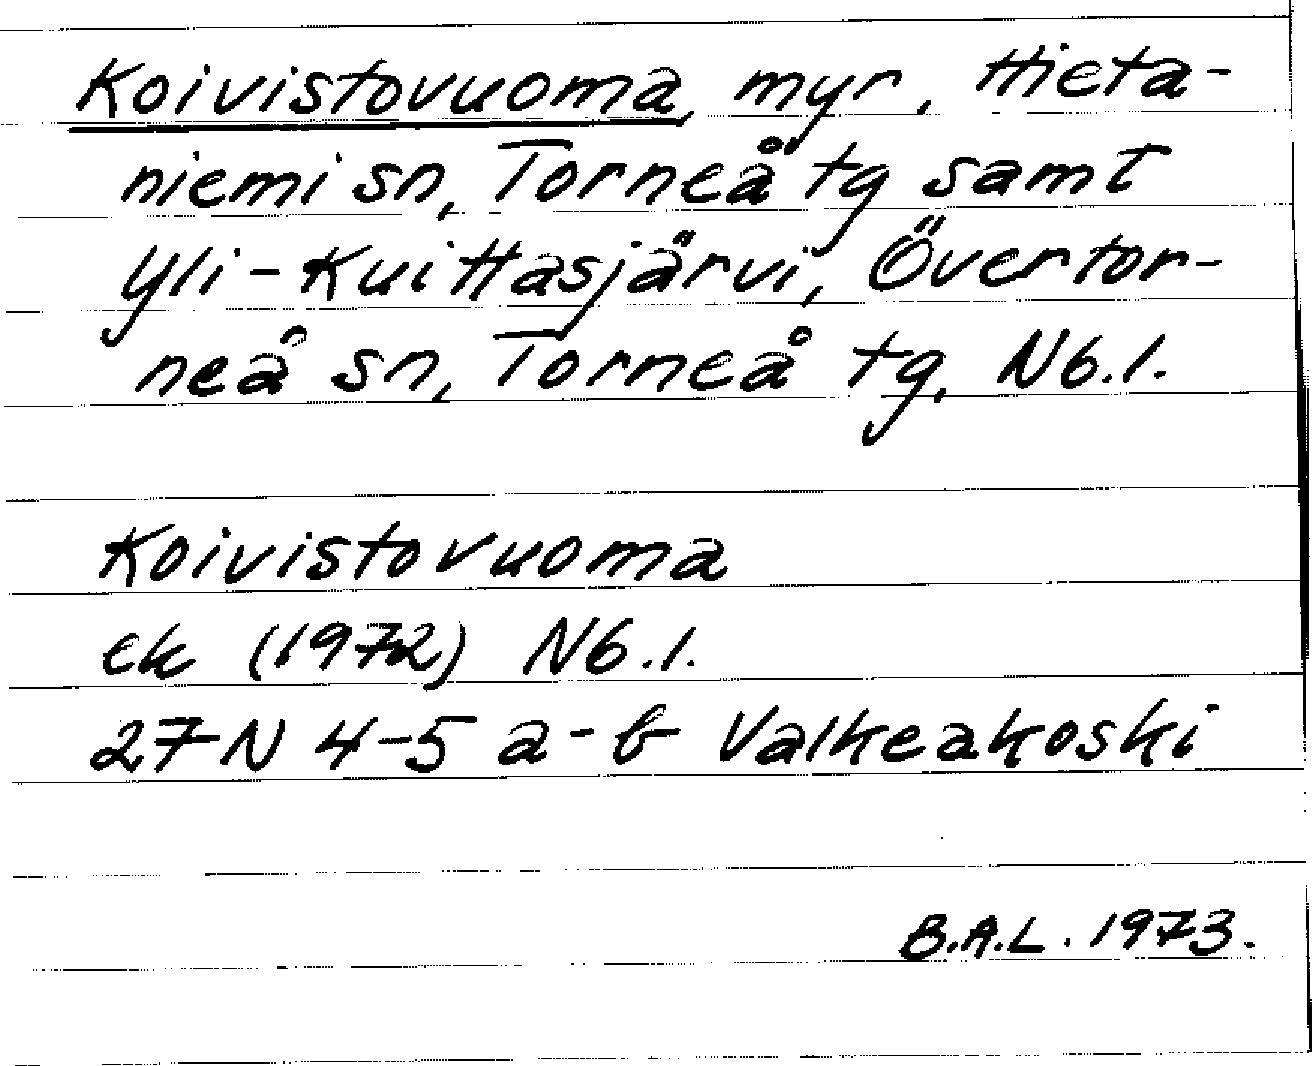 Koivistovuoma, myr, Hieta-
niemi sn, Torneå tg samt
Yli-Kuittasjärvi, Övertor-
neå sn, Torneå tg, Nb.l.
Koivistovuoma
ek (1972) Nb.l.
27 N 4-5 a-b Valkeakoski
B.A.L. 1973.